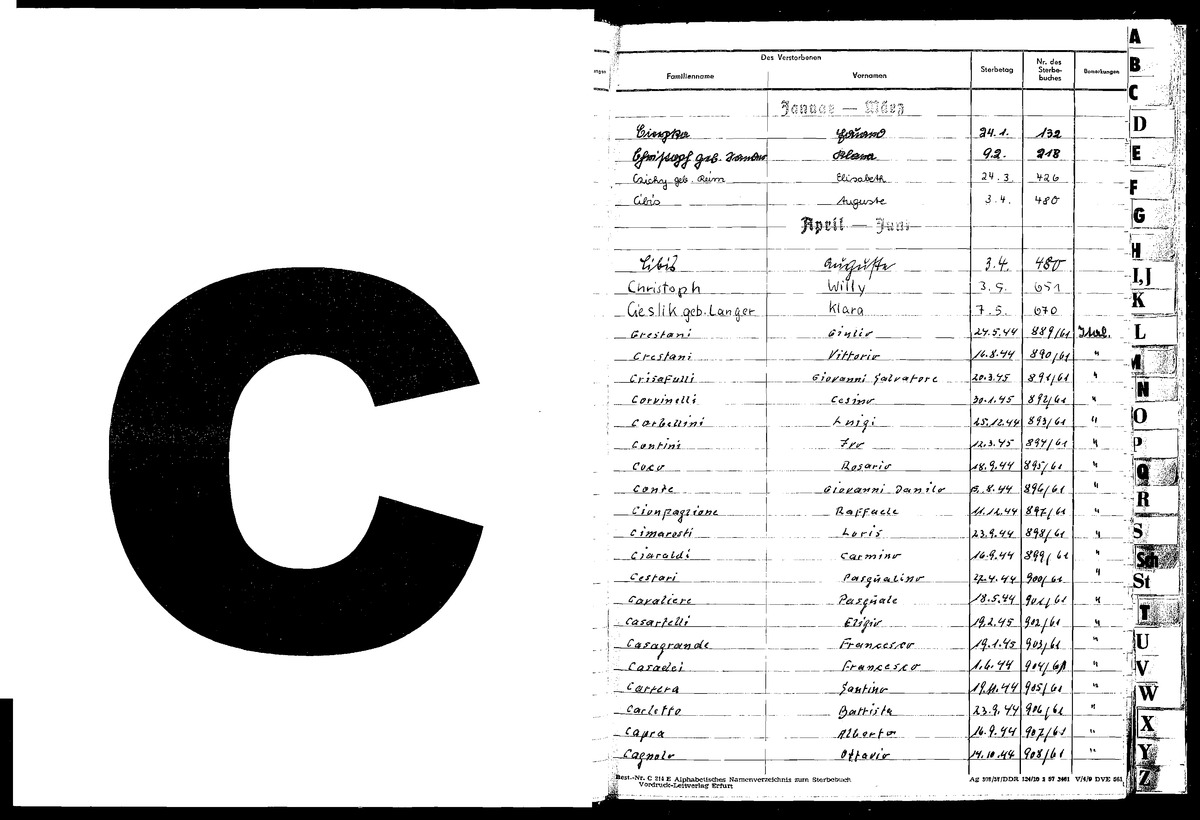 C
Des Verstorbenen
Familienname Vornamen Sterbetag Nr. des Sterbe-buches Bemerkungen
Januar — März
24.1. 132
Christoph geb. Klara 9.2. 218
Czichy geb. Reim Elisabeth 24.3. 426
Cibis Auguste 3.4. 480
April — Juni
Cibis Auguste 3.4. 480
Christoph Willy 3.5. 651
Cieslik geb. Langer Klara 7.5. 670
Crestani Giulio 24.5.44 889/61 Ital.
Crestani Vittorio 16.8.44 890/61 "
Crisafulli Giovanni Salvatore 20.3.45 891/61 "
Corvinelli Cesino 30.1.45 892/61 "
Corbellini Luigi 25.12.44 893/61 "
Contini Ivo 12.3.45 894/61 "
Coco Rosario 18.9.44 895/61 "
Conte Giovanni Danilo 8.44 896/61 "
Cionpaglione Raffaele 11.12.44 897/61 "
Cimarosti Loris 23.9.44 898/61 "
Ciaraldi Carmino 16.9.44 899/61 "
Cestari Pasqualino 27.4.44 900/61 "
Cavaliere Pasquale 18.5.44 901/61 "
Casartelli Eligio 19.2.45 902/61 "
Casagrande Francesco 19.1.45 903/61 "
Casadei Francesco 1.6.44 904/61 "
Carrera Santino 19.11.44 905/61 "
Carletto Battista 23.9.44 906/61 "
Capra Alberto 16.9.44 907/61 "
Cagnolo Ottavio 14.10.44 908/61 "
Best.-Nr. C 214 E Alphabetisches Namenverzeichnis zum Sterbebuch
Vordruck-Leitverlag Erfurt
A
B
C
D
E
F
G
H
I,J
K
L
M
N
O
P
Q
R
S
Sch
St
T
U
V
W
X
Y
Z